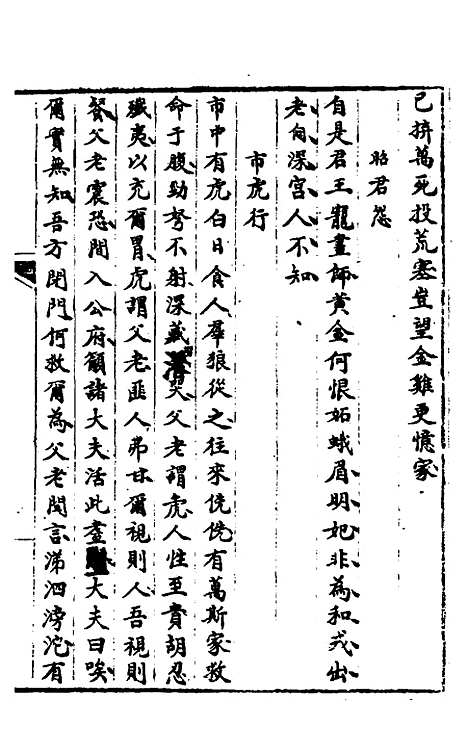 已拚萬死投荒塞豈望金雞更憶家
昭君怨
自是君王寵畫師黃金何恨妬蛾眉明妃非為和戎出
老向深宮人不知
市虎行
市中有虎白日食人羣狼從之往來侁侁有萬斯家救
命于腹勁弩不射深藏哭父老謂虎人性至貴胡忍
殲夷以充爾胃虎謂父老匪人弗甘爾視則人吾視則
餐父老震恐間入公府籲諸大夫活此盡大夫曰唉
爾實無知吾方閉門何救爾為父老聞言涕泗滂沱有